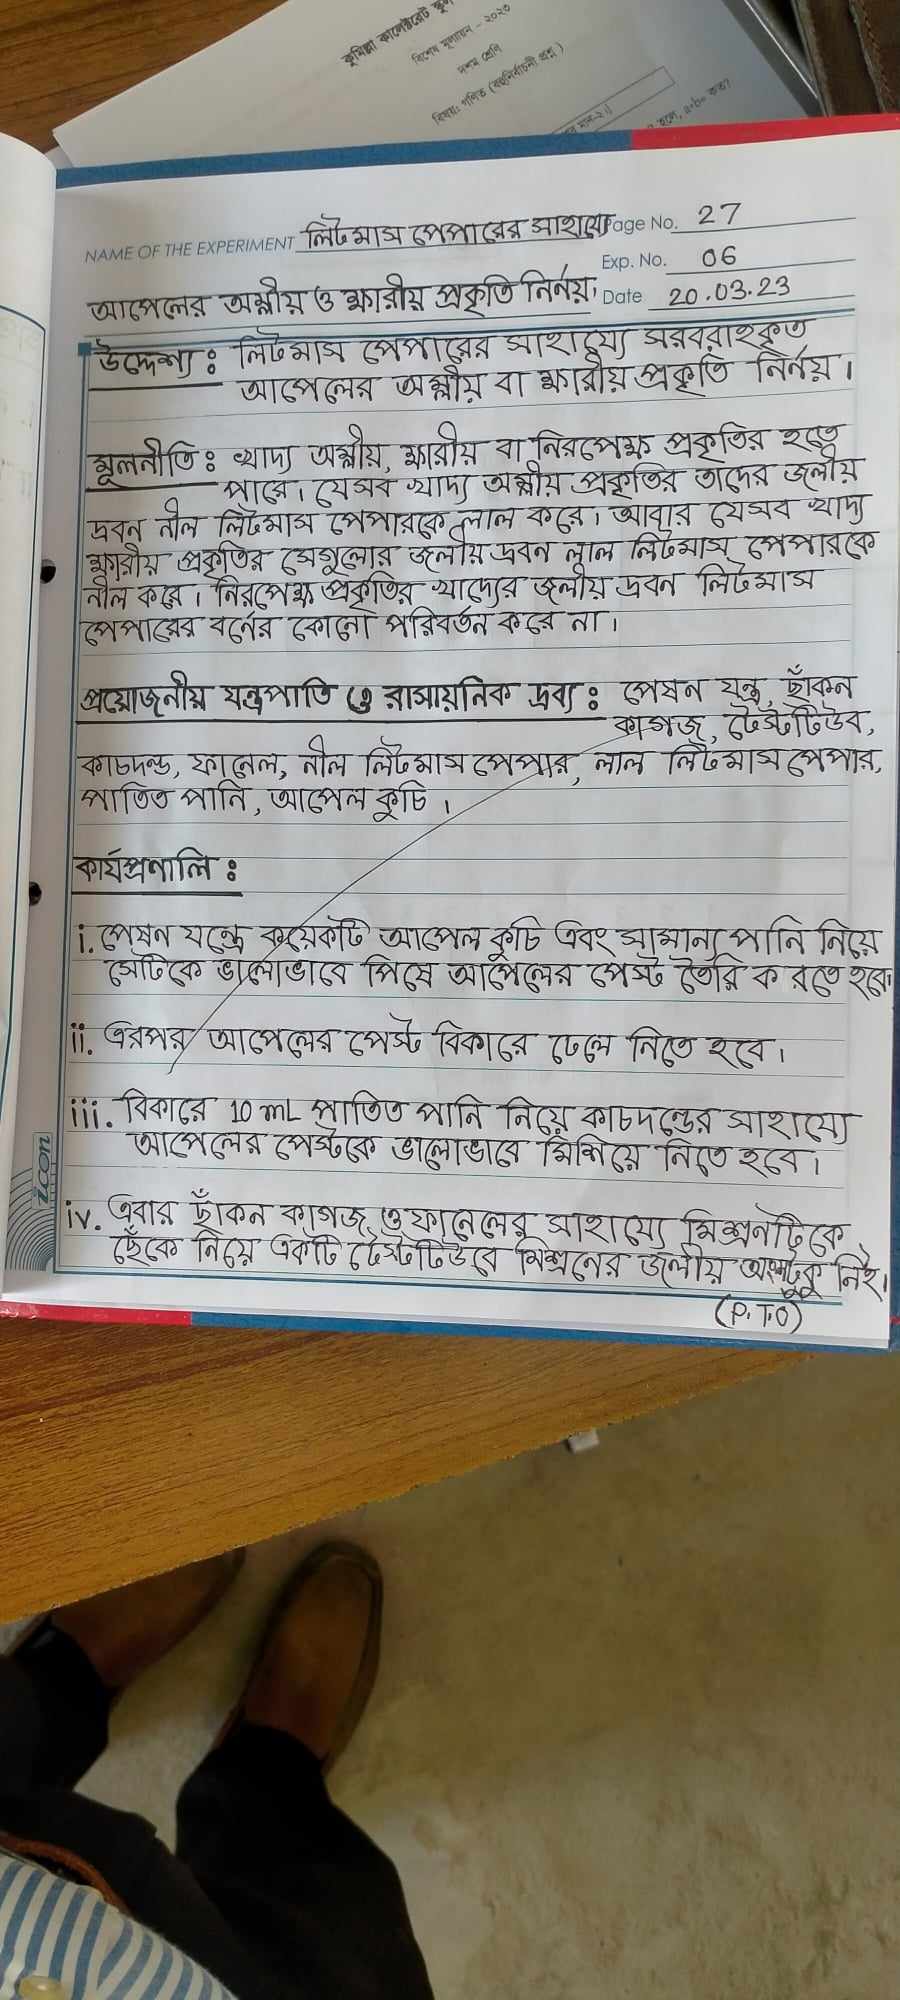 কুমিল্লা কালেক্টরেট স্কুল
বিশেষ মূল্যায়ন - ২০২৩
দশম শ্রেণি
বিষয়: গণিত (বহুনির্বাচনী প্রশ্ন)
মান-২।।
হলে, a+b= কত?
NAME OF THE EXPERIMENT লিটমাস পেপারের সাহায্যে Page No. 27
Exp. No. 06
আপেলের অম্লীয় ও ক্ষারীয় প্রকৃতি নির্নয়। Date 20.03.23
উদ্দেশ্য : লিটমাস পেপারের সাহায্যে সরবরাহকৃত
আপেলের অম্লীয় বা ক্ষারীয় প্রকৃতি নির্নয়।
মূলনীতি : খাদ্য অম্লীয়, ক্ষারীয় বা নিরপেক্ষ প্রকৃতির হতে
পারে। যেসব খাদ্য অম্লীয় প্রকৃতির তাদের জলীয়
দ্রবন নীল লিটমাস পেপারকে লাল করে। আবার যেসব খাদ্য
ক্ষারীয় প্রকৃতির সেগুলোর জলীয় দ্রবন লাল লিটমাস পেপারকে
নীল করে। নিরপেক্ষ প্রকৃতির খাদ্যের জলীয় দ্রবন লিটমাস
পেপারের বর্নের কোনো পরিবর্তন করে না।
প্রয়োজনীয় যন্ত্রপাতি ও রাসায়নিক দ্রব্য : পেষন যন্ত্র, ছাঁকন
কাগজ, টেস্টটিউব,
কাচদন্ড, ফানেল, নীল লিটমাস পেপার, লাল লিটমাস পেপার,
পাতিত পানি, আপেল কুচি।
কার্যপ্রনালি :
i. পেষন যন্ত্রে কয়েকটি আপেল কুচি এবং সামান্য পানি নিয়ে
সেটিকে ভালোভাবে পিষে আপেলের পেস্ট তৈরি করতে হবে।
ii. এরপর আপেলের পেস্ট বিকারে ঢেলে নিতে হবে।
iii. বিকারে 10 mL পাতিত পানি নিয়ে কাচদন্ডের সাহায্যে
আপেলের পেস্টকে ভালোভাবে মিশিয়ে নিতে হবে।
iv. এবার ছাঁকন কাগজ ও ফানেলের সাহায্যে মিশ্রনটিকে
ছেঁকে নিয়ে একটি টেস্টটিউবে মিশ্রনের জলীয় অংশটুকু নিই।
(P.T.O)
icon